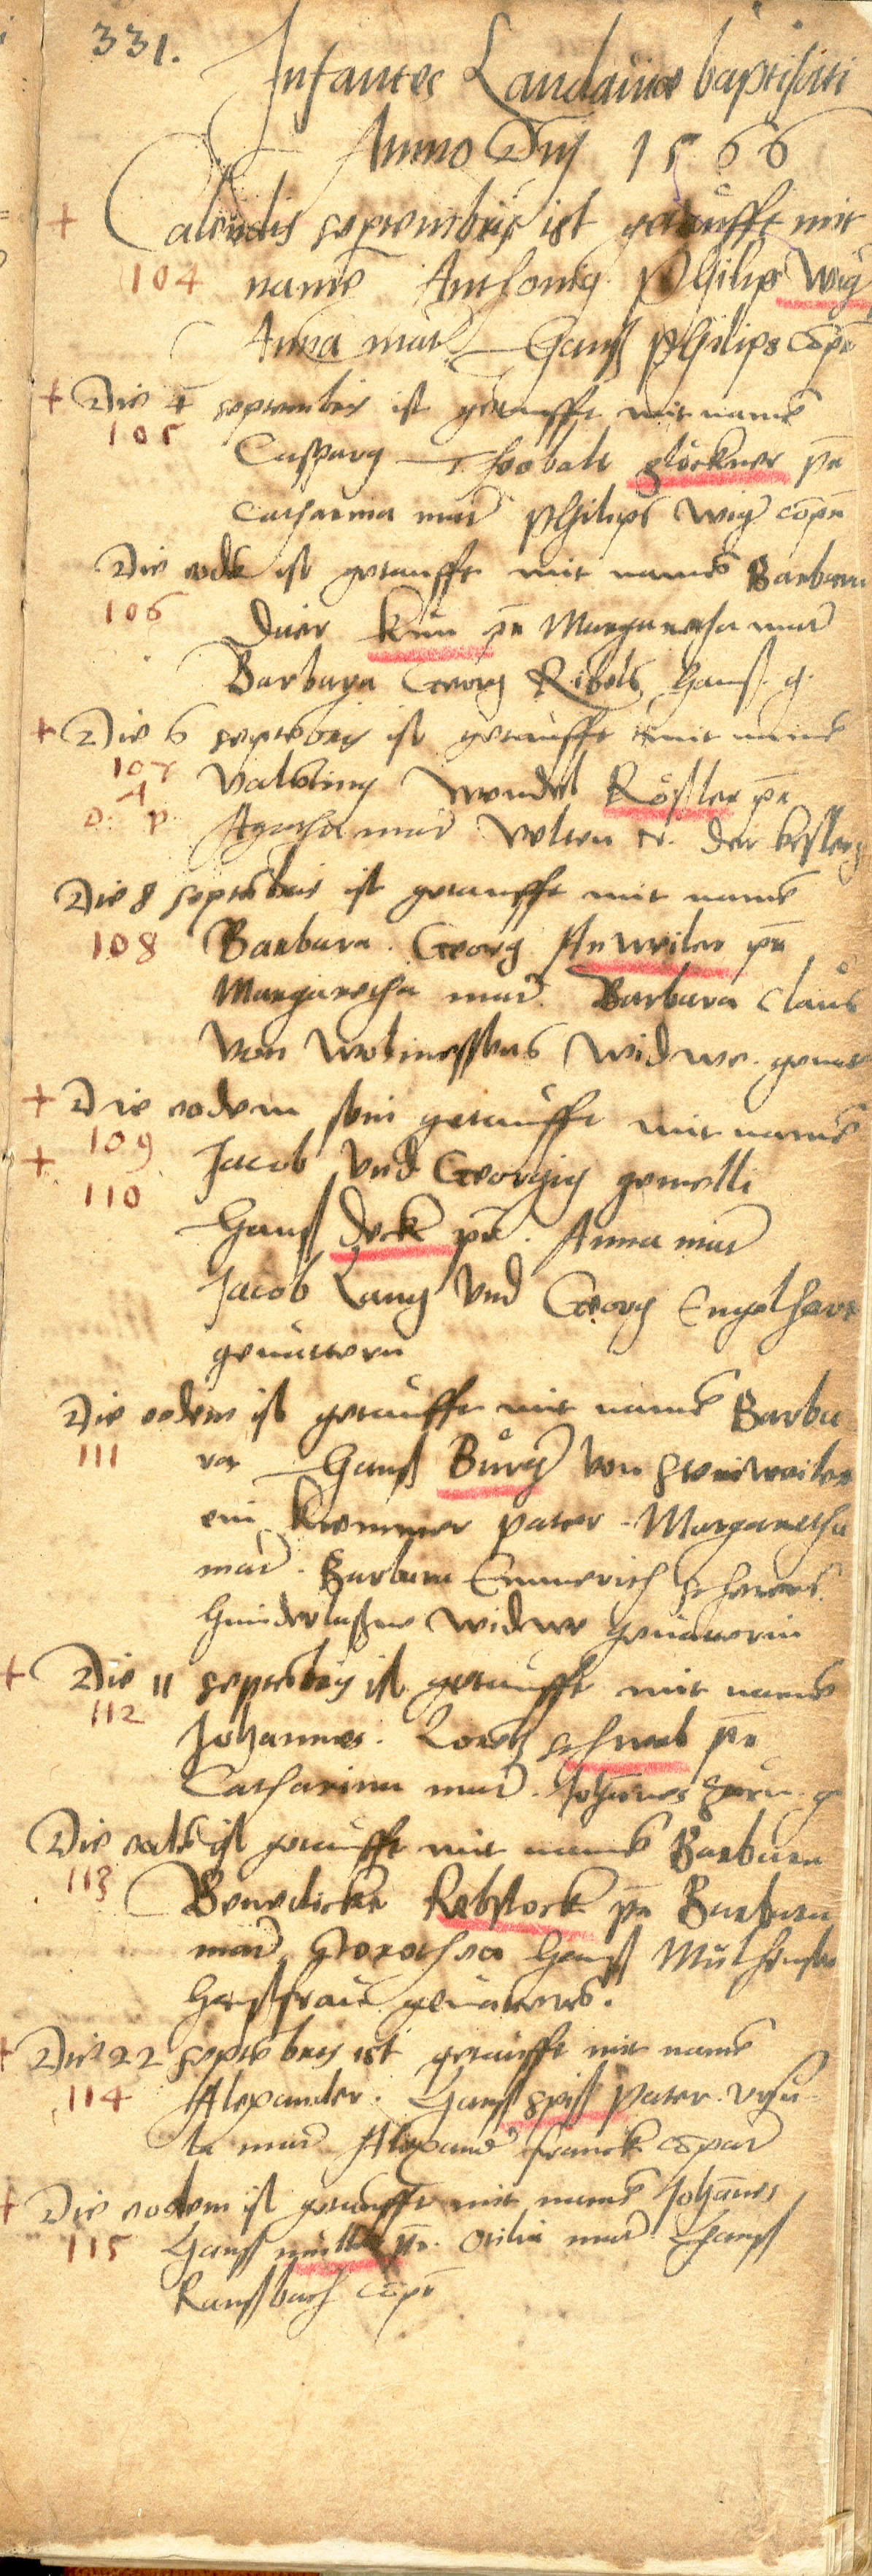 331.
Infantes Landauiae baptisati
Anno Dnj 1566
+ Calendis septembris ist getaufft mit
104 name Anthonig Philips Wig
Anna mat Hanß Philips cōpr
+ Die 4 septembris ist getaufft mit namē
105 Casparg Theobalt glöckner pr
Catharina mat Philips Wig cōpr
Die eodē ist getaufft mit namē Barbara
106 kun pr Margaretha mat
Barbara Georg Ribels hauß. g.
+ Die 6 septēbris ist getaufft mit namē
107 Valēting Wendel Rößler pr
A
o. p. Agatha mat Velten der
Die 8 septēbris ist getaufft mit namē
108 Barbara. Georg Anweiler pr
Margaretha mat. Barbara Claus
von Widwe. geuat
+ Die eodem sein getaufft mit namē
109
+ Jacob vnd Georgig gemelli
110
Hanß Deck pr. Anna mat
Jacob Lang vnd Georg Engelhart
geuattern
Die eodem ist getaufft mit namē Barba
111 ra Hanß Burg von Steinweiler
ein kremmer pater. Margaretha
mat. Barbara Emmerich
hinderlaßne Widwe geuatterin
+ Die 11 septēbris ist getaufft mit namē
112
Johannes. Lorētz schwab pr
Catharina mat. Johānes g
Die eodē ist getaufft mit namē Barbara
113 Benedickt Rebstock pr Barbara
mat Dorothea Hanß
Haußfrau geuatters.
+ Die 22 septēbris ist getaufft mit namē
114 Alexander. Hanß spiß pater. Vrsu
la mat Alexand franck cōpat
+ Die eodem ist getaufft mit namē Johānes
115 Hanß müller pr. Otilia mat Hanß
Ranßbach cōpr